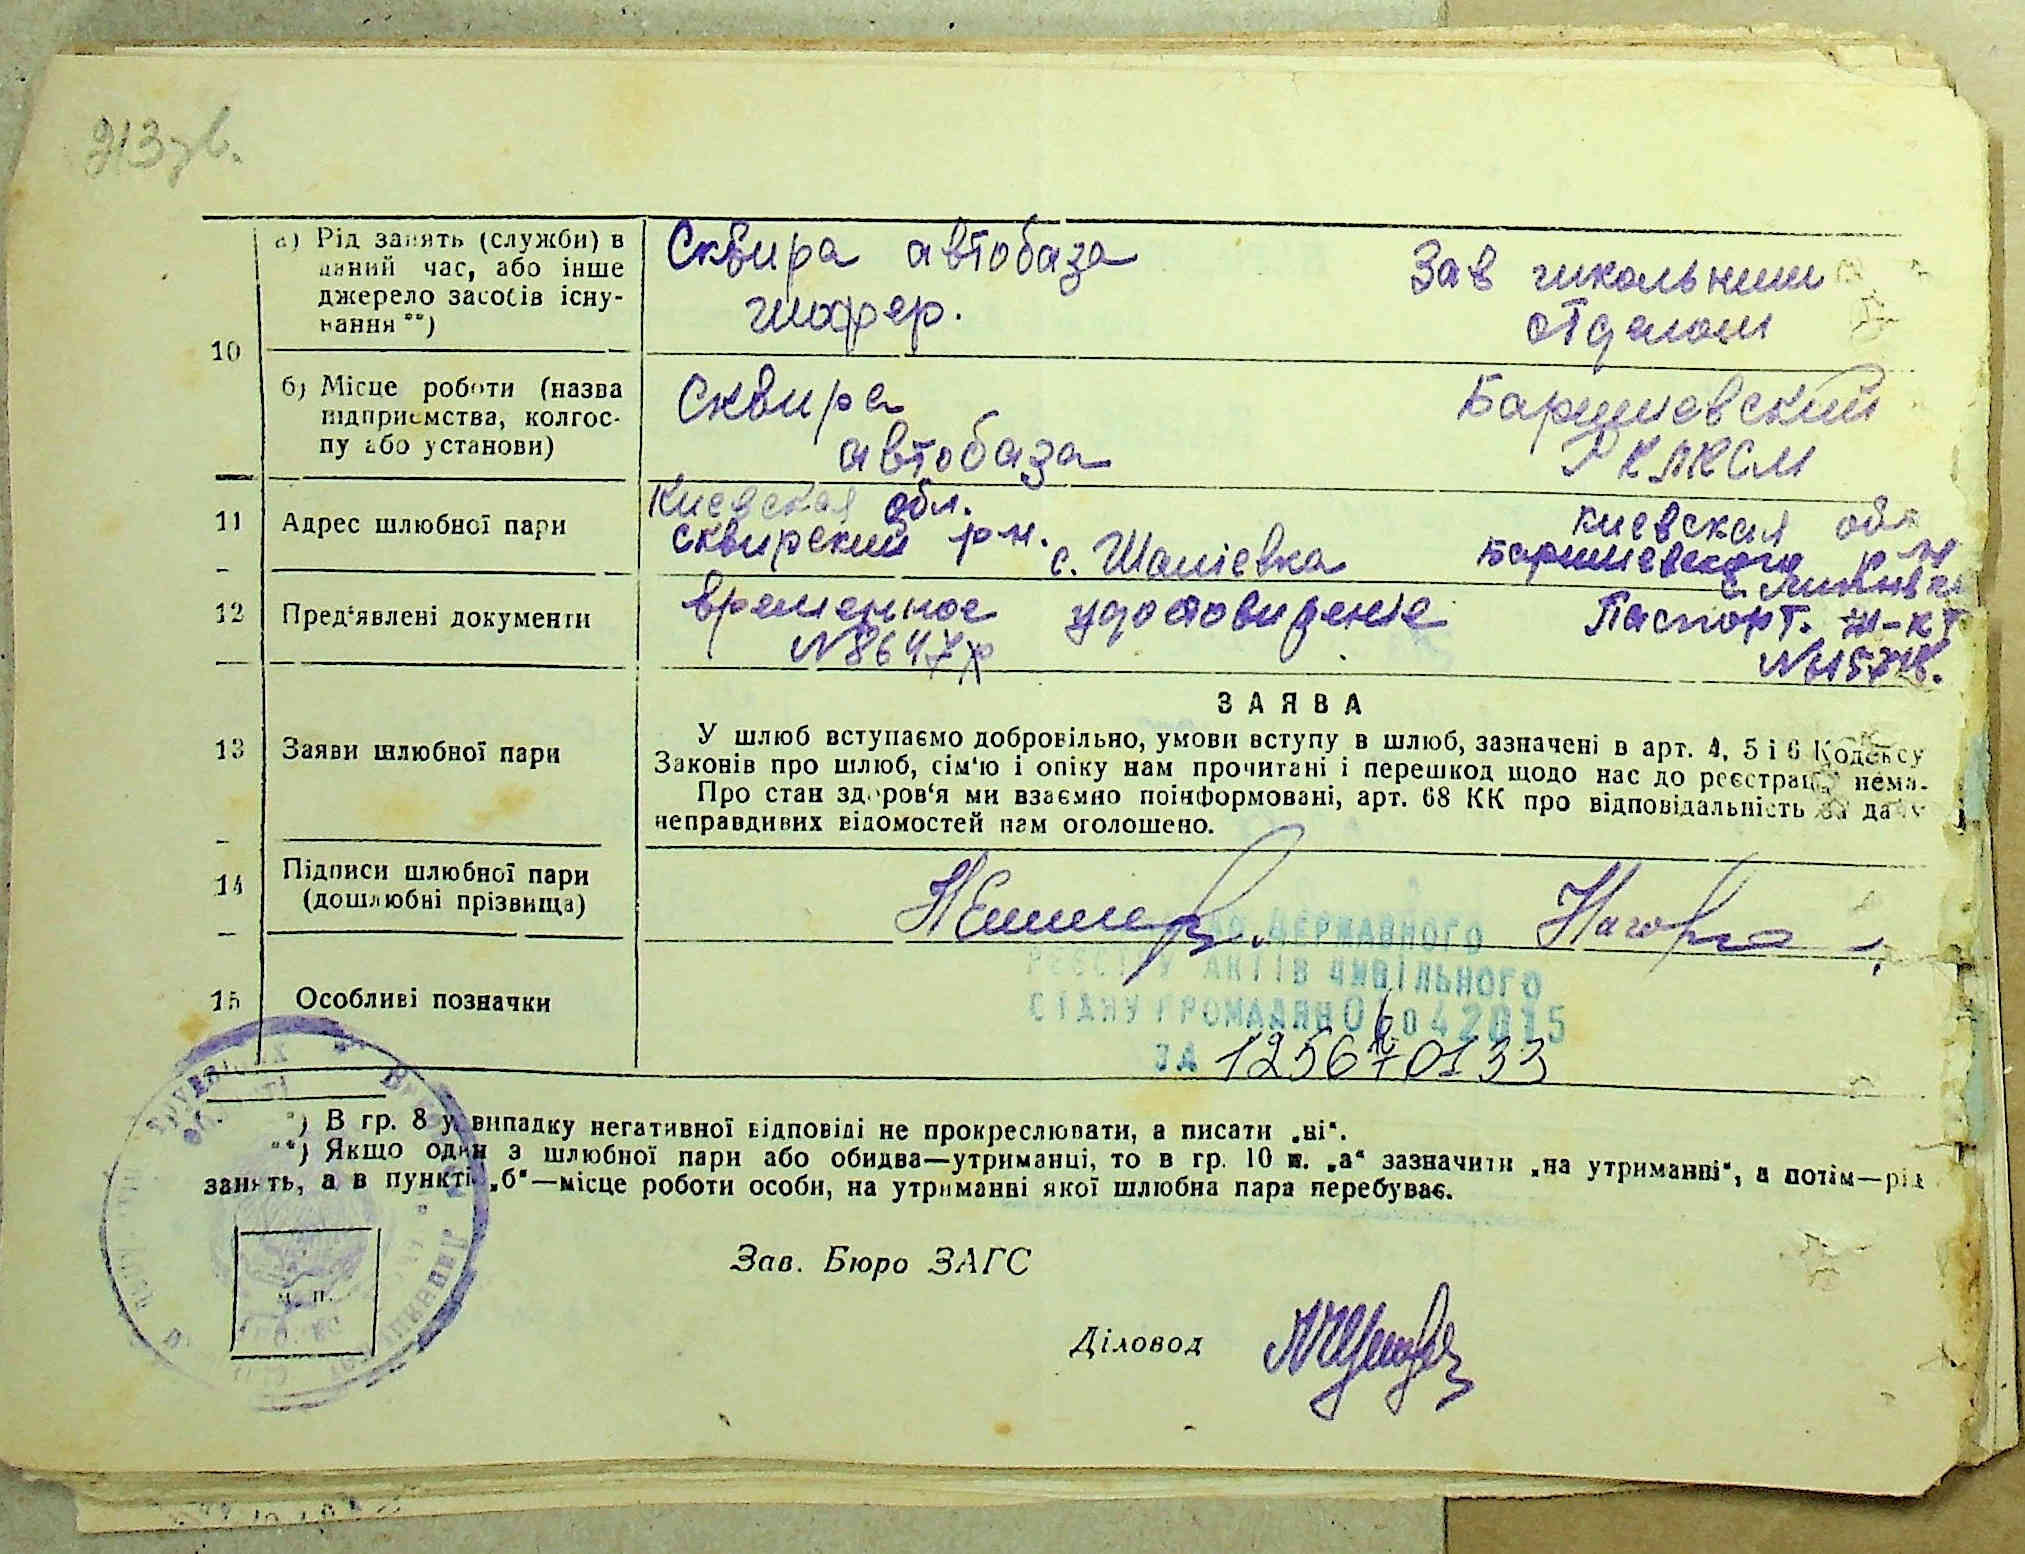 213 зв.
а) Рід занять (служби) в
даний час, або інше
джерело засобів існу-
вання **)
Сквира автобаза
шофер.
Зав школьним
отделом
10
б) Місце роботи (назва
підприємства, колгос-
пу або установи)
Сквира
автобаза
Баришевский
РКЛКСМ
11
Адрес шлюбної пари
Киевская обл.
Сквирский р-н.
с. Шаліевка
Киевская обл
Баришевского
12
Пред'явлені документи
временное удостовидение
№8647р
Паспорт.
13
Заяви шлюбної пари
ЗАЯВА
У шлюб вступаємо добровільно, умови вступу в шлюб, зазначені в арт. 4, 5 і 6 Кодексу
Законів про шлюб, сім'ю і опіку нам прочитані і перешкод щодо нас до реєстрації нема.
Про стан здоров'я ми взаємно поінформовані, арт. 68 КК про відповідальність за дачу
неправдивих відомостей нам оголошено.
14
Підписи шлюбної пари
(дошлюбні прізвища)
15
Особливі позначки
ДЕРЖАВНОГО
РЕЄСТРУ АКТІВ ЦИВІЛЬНОГО
СТАНУ ГРОМАДЯН 04 2015
ЗА
*) В гр. 8 у випадку негативної відповіді не прокреслювати, а писати „ні“.
**) Якщо один з шлюбної пари або обидва—утриманці, то в гр. 10 п. „а“ зазначити „на утриманні“, а потім—рід
занять, а в пункті „б“—місце роботи особи, на утриманні якої шлюбна пара перебуває.
Зав. Бюро ЗАГС
м. п.
Діловод